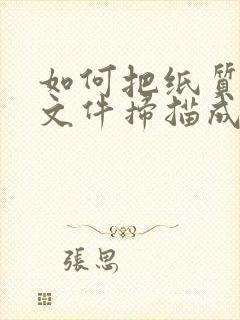 如何把纸质
文件扫描成
張思